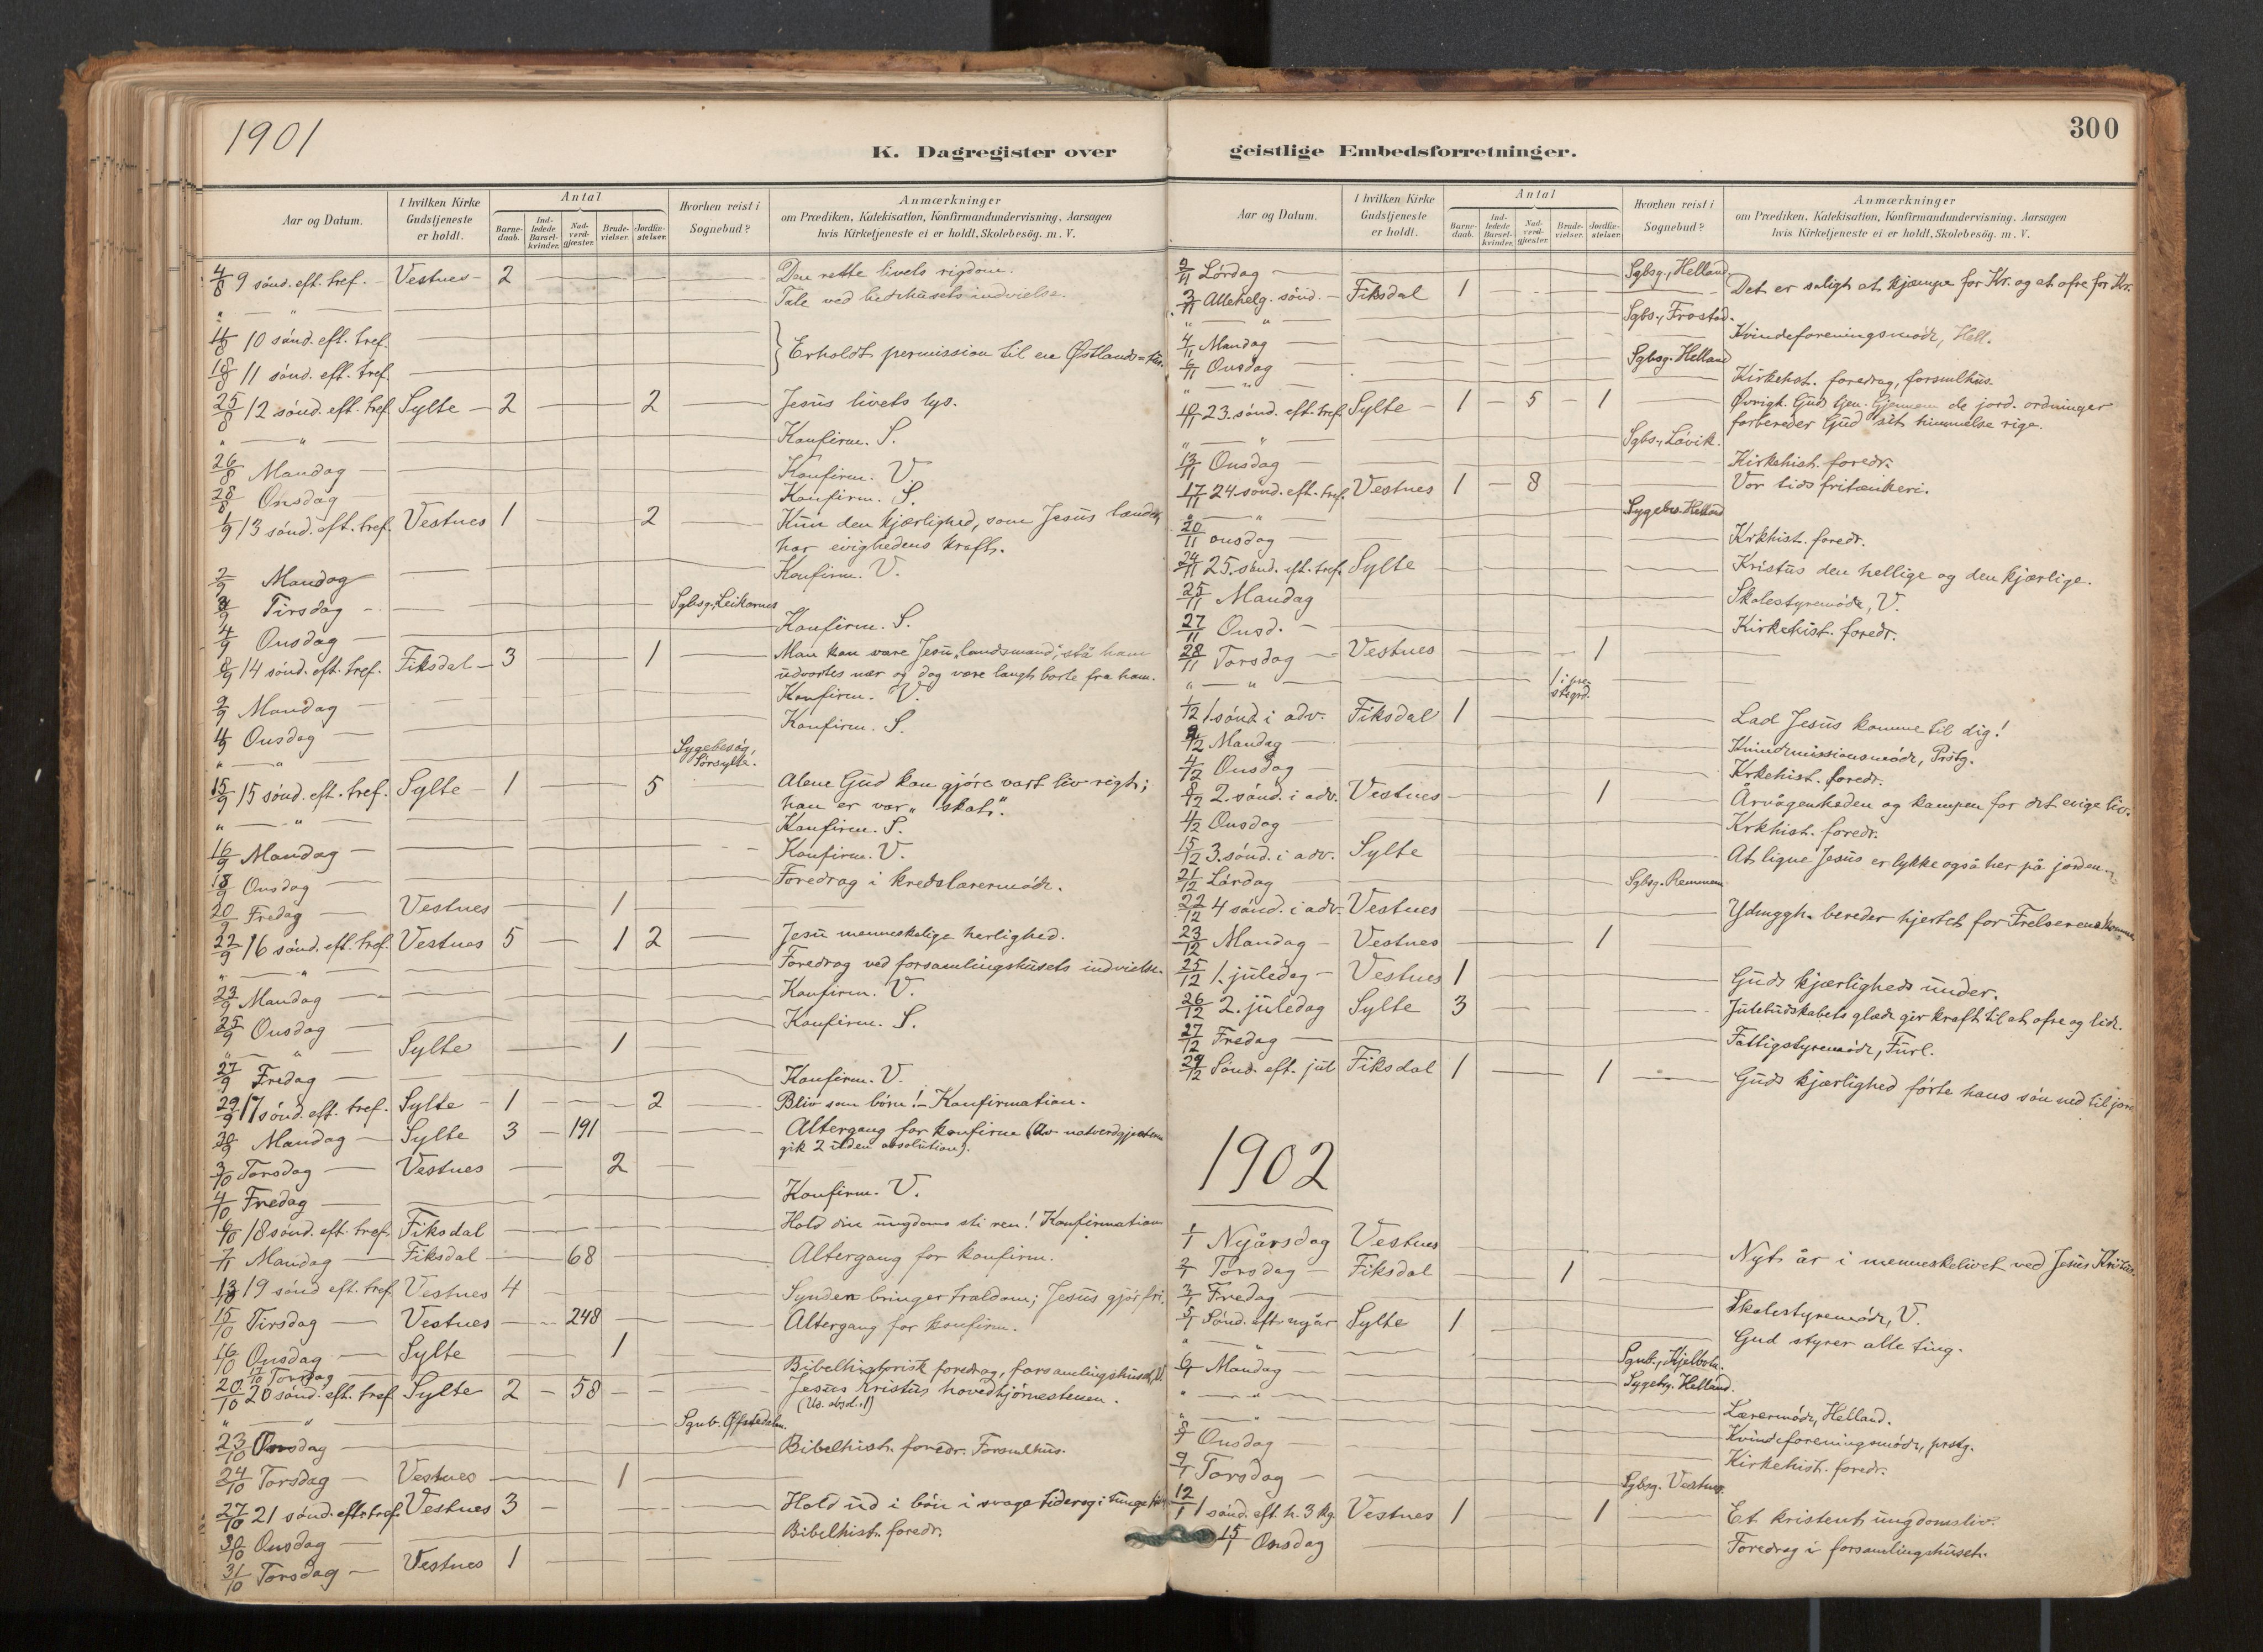 1901
K. Dagregister over
Aar og Datum.
I hvilken Kirke Gudstjeneste er holdt.
Antal
Barnedaab.
Indledede Barselkvinder.
Nadverdgjæster.
Brudevielser.
Jordfæstelser.
Hvorhen reist i Sognebud?
Anmærkninger
om Prædiken, Katekisation, Konfirmandundervisning. Aarsagen
hvis Kirketjeneste ei er holdt, Skolebesög. m. V.
4/8 9 sönd. eft. tref. – Vestnes – 2 Den rette livets rigdom.
" — " Tale ved bedehusets indvielse.
11/8 10 sönd. eft. tref.
18/8 11 sönd. eft. tref. } Erholdt permission til en Østlands=
25/8 12 sönd. eft. tref. Sylte – 2 2 Jesus livets lys.
" — " Konfirm. S.
26/8 Mandag — Konfirm. V.
28/8 Onsdag — Konfirm. S.
1/9 13 sönd. eft. tref. Vestnes 1 2 Kun den kjærlighed, som Jesus tænder,
har evighedens kraft.
2/9 Mandag Konfirm. V.
3/9 Tirsdag – Sgbsg., Leikarnes
4/9 Onsdag — Konfirm. S.
8/9 14 sönd. eft. tref. Fiksdal – 3 1 Man kan være Jesu „landsmand“, stå ham
udvortes nær og dog være langt borte fra ham.
9/9 Mandag — Konfirm. V.
11/9 Onsdag — Konfirm. S.
" — " Sygebesög, Sörsylte.
15/9 15 sönd. eft. tref. Sylte – 1 5 Alene Gud kan gjöre vort liv rigt;
han er vor „skat“.
" — " Konfirm. S.
16/9 Mandag — Konfirm. V.
18/9 Onsdag — Foredrag i kredslærermöde.
20/9 Fredag — Vestnes 1
22/9 16 sönd. eft. tref. Vestnes 5 1 2 Jesu menneskelige herlighed.
" — " Foredrag ved forsamlingshusets indvielse.
23/9 Mandag — Konfirm. V.
25/9 Onsdag — Konfirm. S.
" — " Sylte 1
27/9 Fredag — Konfirm. V.
29/9 17 sönd. eft. tref. Sylte – 1 2 Bliv som börn! – Konfirmation.
30/9 Mandag – Sylte 3 – 191 Altergang for konfirm (Av natverdgjæsterne
gik 2 uden absolution).
3/10 Torsdag — Vestnes 2
4/10 Fredag — Konfirm. V.
6/10 18 sönd. eft. tref. Fiksdal Hold din ungdoms sti ren! Konfirmation
7/ Mandag – Fiksdal 68 Altergang for konfirm.
13/10 19 sönd eft. tref. Vestnes 4 Synden bringer trældom; Jesus gjör fri.
15/10 Tirsdag — Vestnes 248 Altergang for konfirm.
16/10 Onsdag — Sylte 1
17/10 Torsdag Bibelhistorisk foredrag, forsamlingshuset, V.
20/10 20 sönd. eft. tref. Sylte 2 – 58 Jesus Kristus hovedhjörnestenen.
(Ud. absol. 1)
" — " Sgnb. Øfstedalen.
23/10 Onsdag — Bibelhist. foredr. Forsmlhus.
24/10 Torsdag — Vestnes 1
27/10 21 sönd. eft. tref. Vestnes 3 Hold ud i bön i svage tider og i tunge
30/10 Onsdag — Bibelhist. foredr.
31/10 Torsdag — Vestnes 1
300
geistlige Embedsforretninger.
Aar og Datum.
I hvilken Kirke Gudstjeneste er holdt.
Antal
Barnedaab.
Indledede Barselkvinder.
Nadverdgjæster.
Brudevielser.
Jordfæstelser.
Hvorhen reist i Sognebud?
Anmærkninger
om Prædiken. Katekisation, Konfirmandundervisning. Aarsagen
hvis Kirketjeneste ei er holdt, Skolebesög. m. V.
2/11 Lördag — Sgbsg., Helland.
3/11 Allehelg. sönd. – Fiksdal 1 Det er saligt at kjæmpe for Kr. og at ofre for Kr.
" — " Sgbs., Frostad.
4/11 Mandag Kvindeforeningsmöde, Hell.
6/11 Onsdag Sgbsg. Helland
" — " Kirkehist. foredrag, forsmlhus.
10/11 23. sönd. eft. tref. Sylte – 1 – 5 – 1 Øvrigh. Guds tjen. Gjennem de jord. ordninger
forbereder Gud sit himmelse rige.
" — " Sgbs., Lövik.
13/11 Onsdag Kirkehist. foredr.
17/11 24. sönd. eft. tref. Vestnes 1 – 8 Vor tids fritænkeri.
" — " Sygebes. Helland
20/11 onsdag Krkhist. foredr.
24/11 25. sönd. eft. tref. Sylte Kristus den hellige og den kjærlige.
25/11 Mandag Skolestyremöde, V.
27/11 Onsd. – Kirkehist. foredr.
28/11 Torsdag — Vestnes 1
" — " 1 i prestegrd.
1/12 1 sönd i adv. Fiksdal 1 Lad Jesus komme til dig!
2/12 Mandag — Kvindemissionsmöde, Prstg.
4/12 Onsdag Krkehist. foredr.
8/12 2. sönd. i adv. Vestnes 1 Årvågenheden og kampen for det evige liv.
4/12 Onsdag Krkhist. foredr.
15/12 3. sönd. i adv. Sylte At ligne Jesus er lykke også her på jorden.
21/12 Lördag Sgbsg. Remmem
22/12 4 sönd. i adv. Vestnes Ydmygh. bereder hjertet for Frelserens komme
23/12 Mandag – Vestnes 1
25/12 1. juledag – Vestnes 1 Guds kjærligheds under.
26/12 2. juledag Sylte 3 Julebudskabets glæde gir kraft til at ofre og lide.
27/12 Fredag — Fattigstyremöde, Furl.
29/12 Sönd. eft. jul Fiksdal 1 1 Guds kjærlighed förte hans sön ned til jord
1902
1/1 Nyårsdag Vestnes Nyt år i menneskelivet ved Jesus Kristus.
2/1 Torsdag – Fiksdal 1
3/1 Fredag — Skolestyremöde, V.
5/1 Sönd. eft. nyår Sylte 1 Gud styrer alle ting.
" — " Sgnb., Kjelbotn.
6/1 Mandag Sygebsg. Helland.
" — " Lærermöde, Helland.
" — " Kvindeforeningsmöde, prstg.
8/1 Onsdag Kirkehist. foredr.
9/1 Torsdag – Sgbsg. Vestnes.
12/1 1 sönd. eft. h. 3 kg. Vestnes 1 1 Et kristent ungdomsliv.
15/1 Onsdag Foredrag i forsamlingshuset.